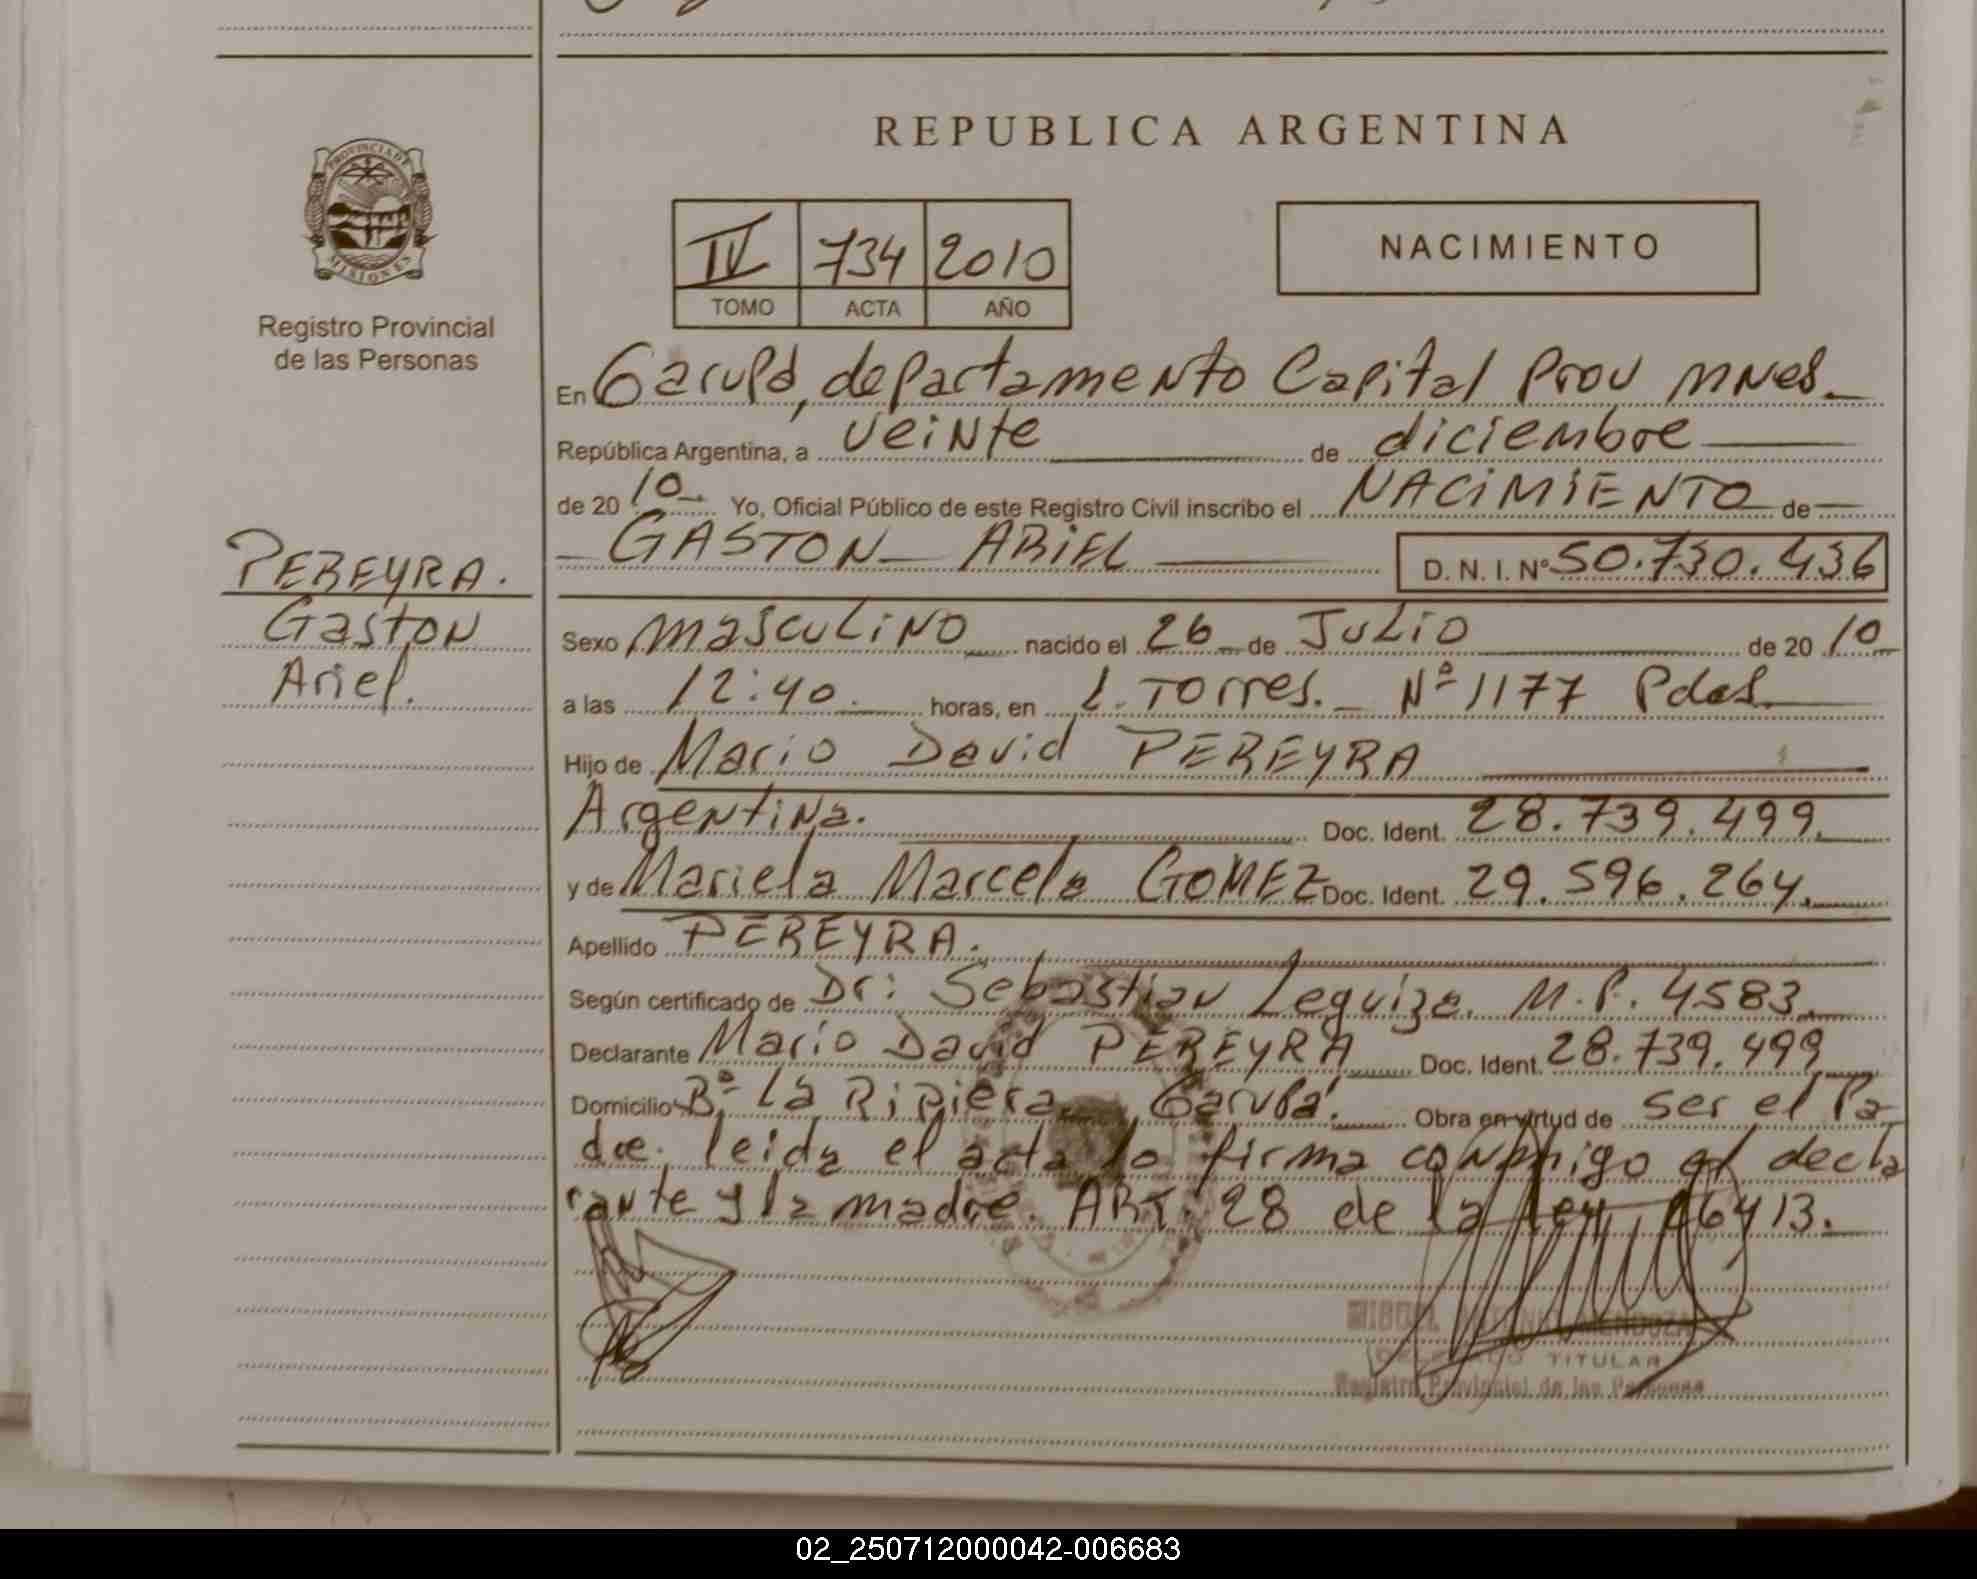 REPUBLICA ARGENTINA
PROVINCIA DE
MISIONES
Registro Provincial
de las Personas
IV 734 2010
TOMO ACTA AÑO
NACIMIENTO
En Garupá, departamento Capital Prov Mnes.
República Argentina, a veinte de diciembre
de 2010 Yo, Oficial Público de este Registro Civil inscribo el NACIMIENTO de
GASTON ARIEL D. N. I. Nº 50.730.436
PEREYRA.
Gaston
Ariel.
Sexo masculino nacido el 26 de Julio de 2010
a las 12:40 horas, en L. Torres. Nº 1177 Pdas.
Hijo de Mario David PEREYRA
Argentina. Doc. Ident. 28.739.499.
y de Mariela Marcela GOMEZ Doc. Ident. 29.596.264.
Apellido PEREYRA.
Según certificado de Dr: Sebastian Leguiza. M.P. 4583.
Declarante Mario David PEREYRA Doc. Ident. 28.739.499
Domicilio Bº La Ribiera Garupá. Obra en virtud de ser el Pa
dre. leida el acta la firma conmigo el decla
rante y la madre. ART. 28 de la Ley 26413.
MENDOZA
TITULAR
Registro Provincial de las Personas
02_250712000042-006683